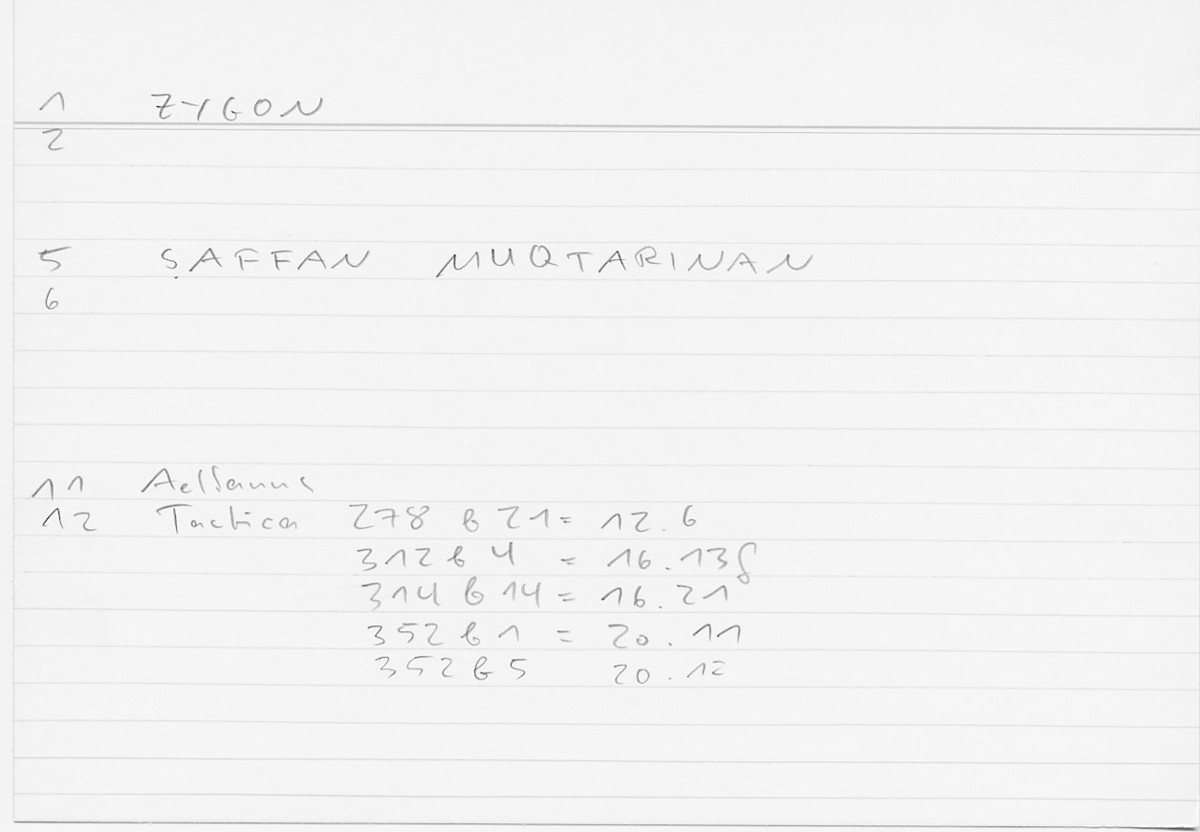 1 ZYGON
2
5 ṢAFFAN MUQTARINAN
6
11 Aelianus
12 Tactica 278 b 21 = 12.6
312 b 4 = 16.13f
314 b 14 = 16.21
352 b 1 = 20.11
352 b 5 20.12